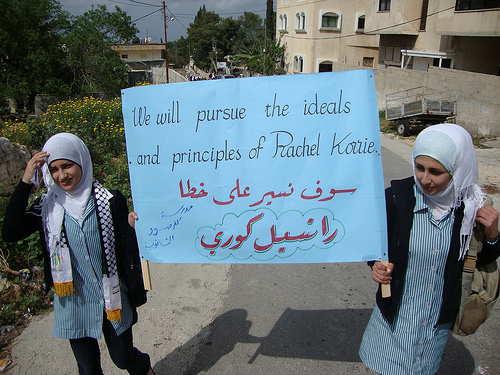 We will pursue the ideals
and principles of Rachel Korrie.
سوف نسير على خطا
راتسيل كوري
مدرسة